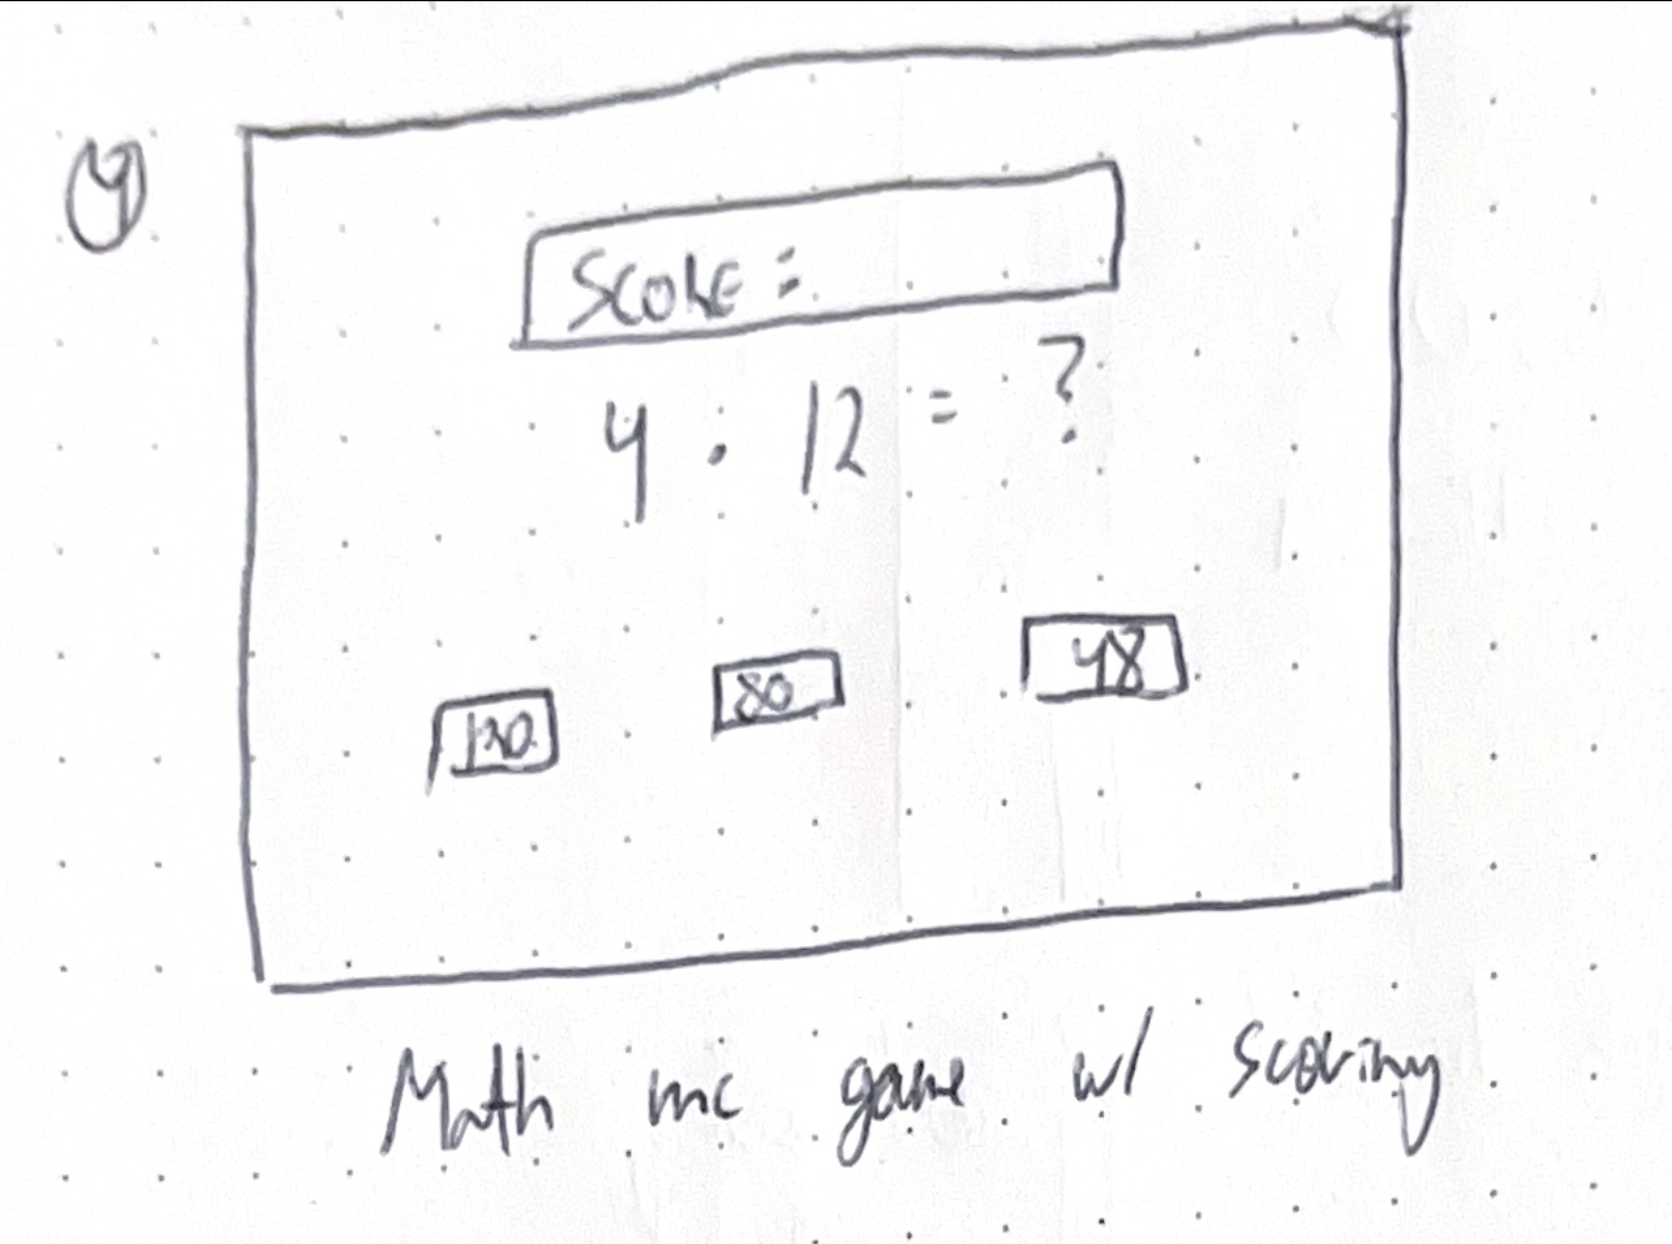 4
SCORE =
4 · 12 = ?
120 80 48
Math mc game w/ scoring